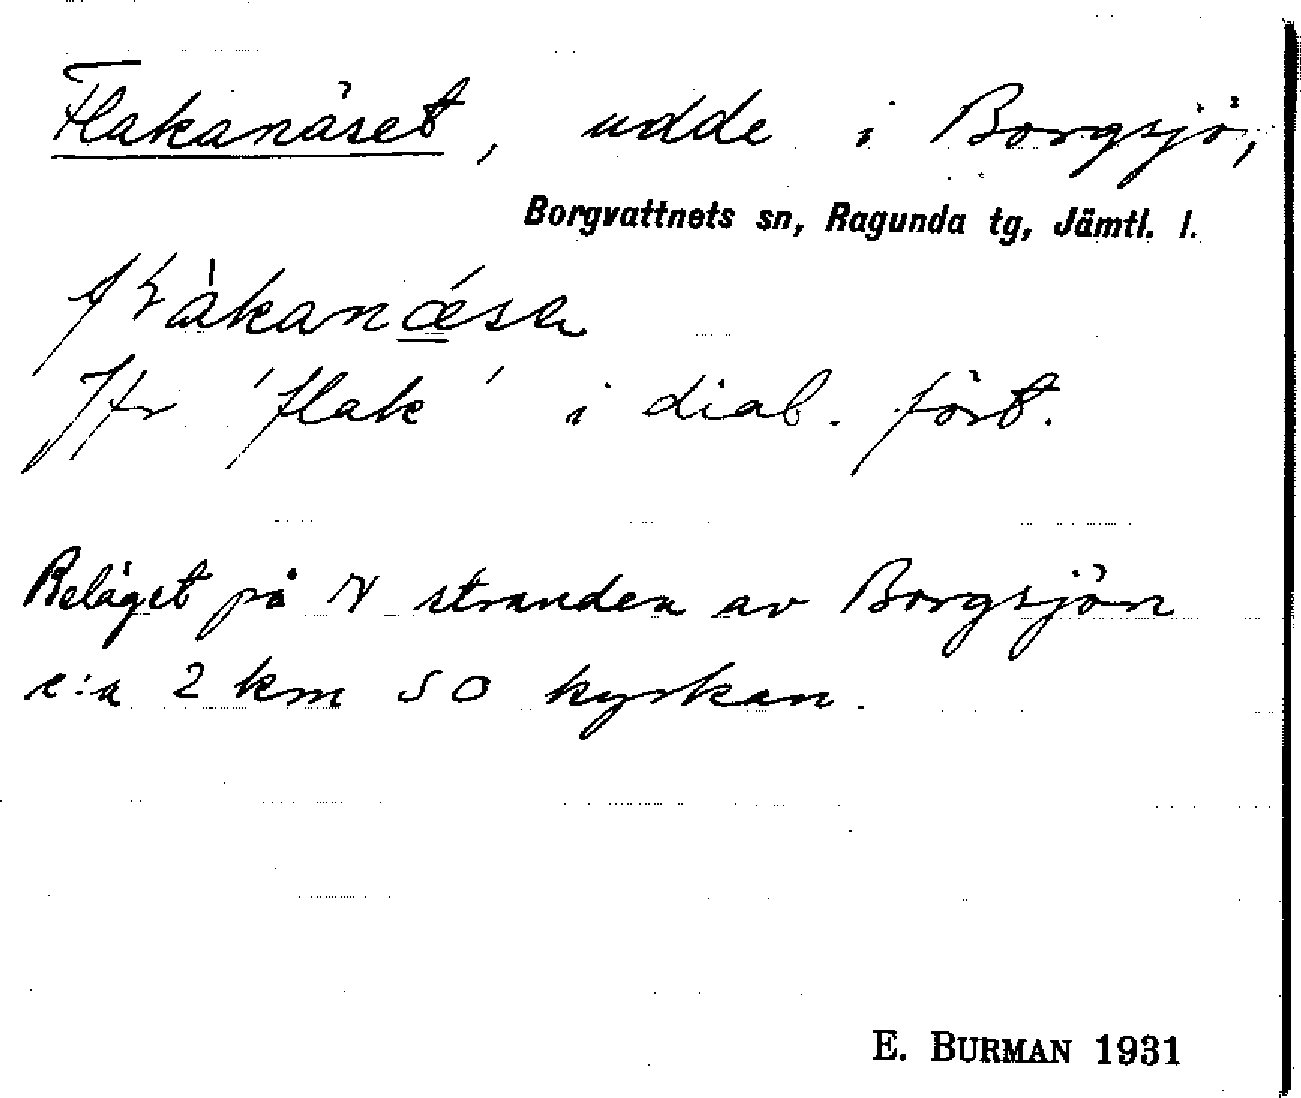 Flakanäset, udde i Borgsjö,
Borgvattnets sn, Ragunda tg, Jämtl. l.
Jfr 'flak' i dial. fört.
Beläget på N stranden av Borgsjön
c:a 2 km SO kyrkan.
E. BURMAN 1931